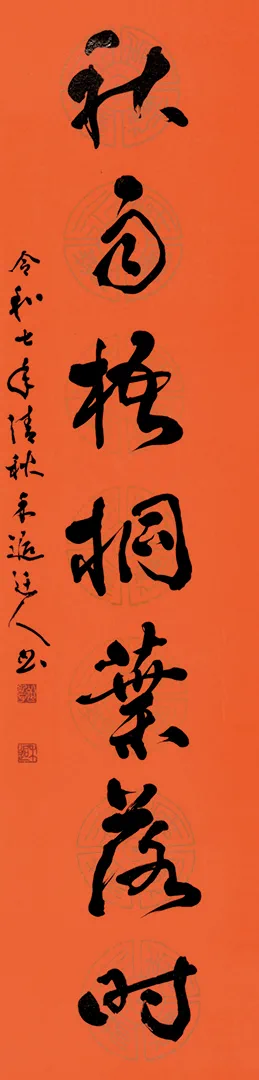 秋雨梧桐葉落时
令和七年清秋